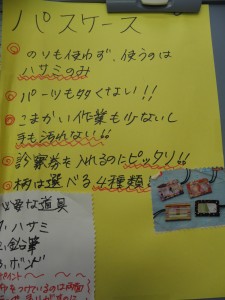 パスケース
のりも使わず、使うのは
ハサミのみ
パーツも多くない!!
こまかい作業も少ないし
手も汚れない!!
診察券を入れるのにピッタリ!!
柄は選べる4種類!
必要な道具
1.ハサミ
2.鉛筆
3.ボンド
ポイント